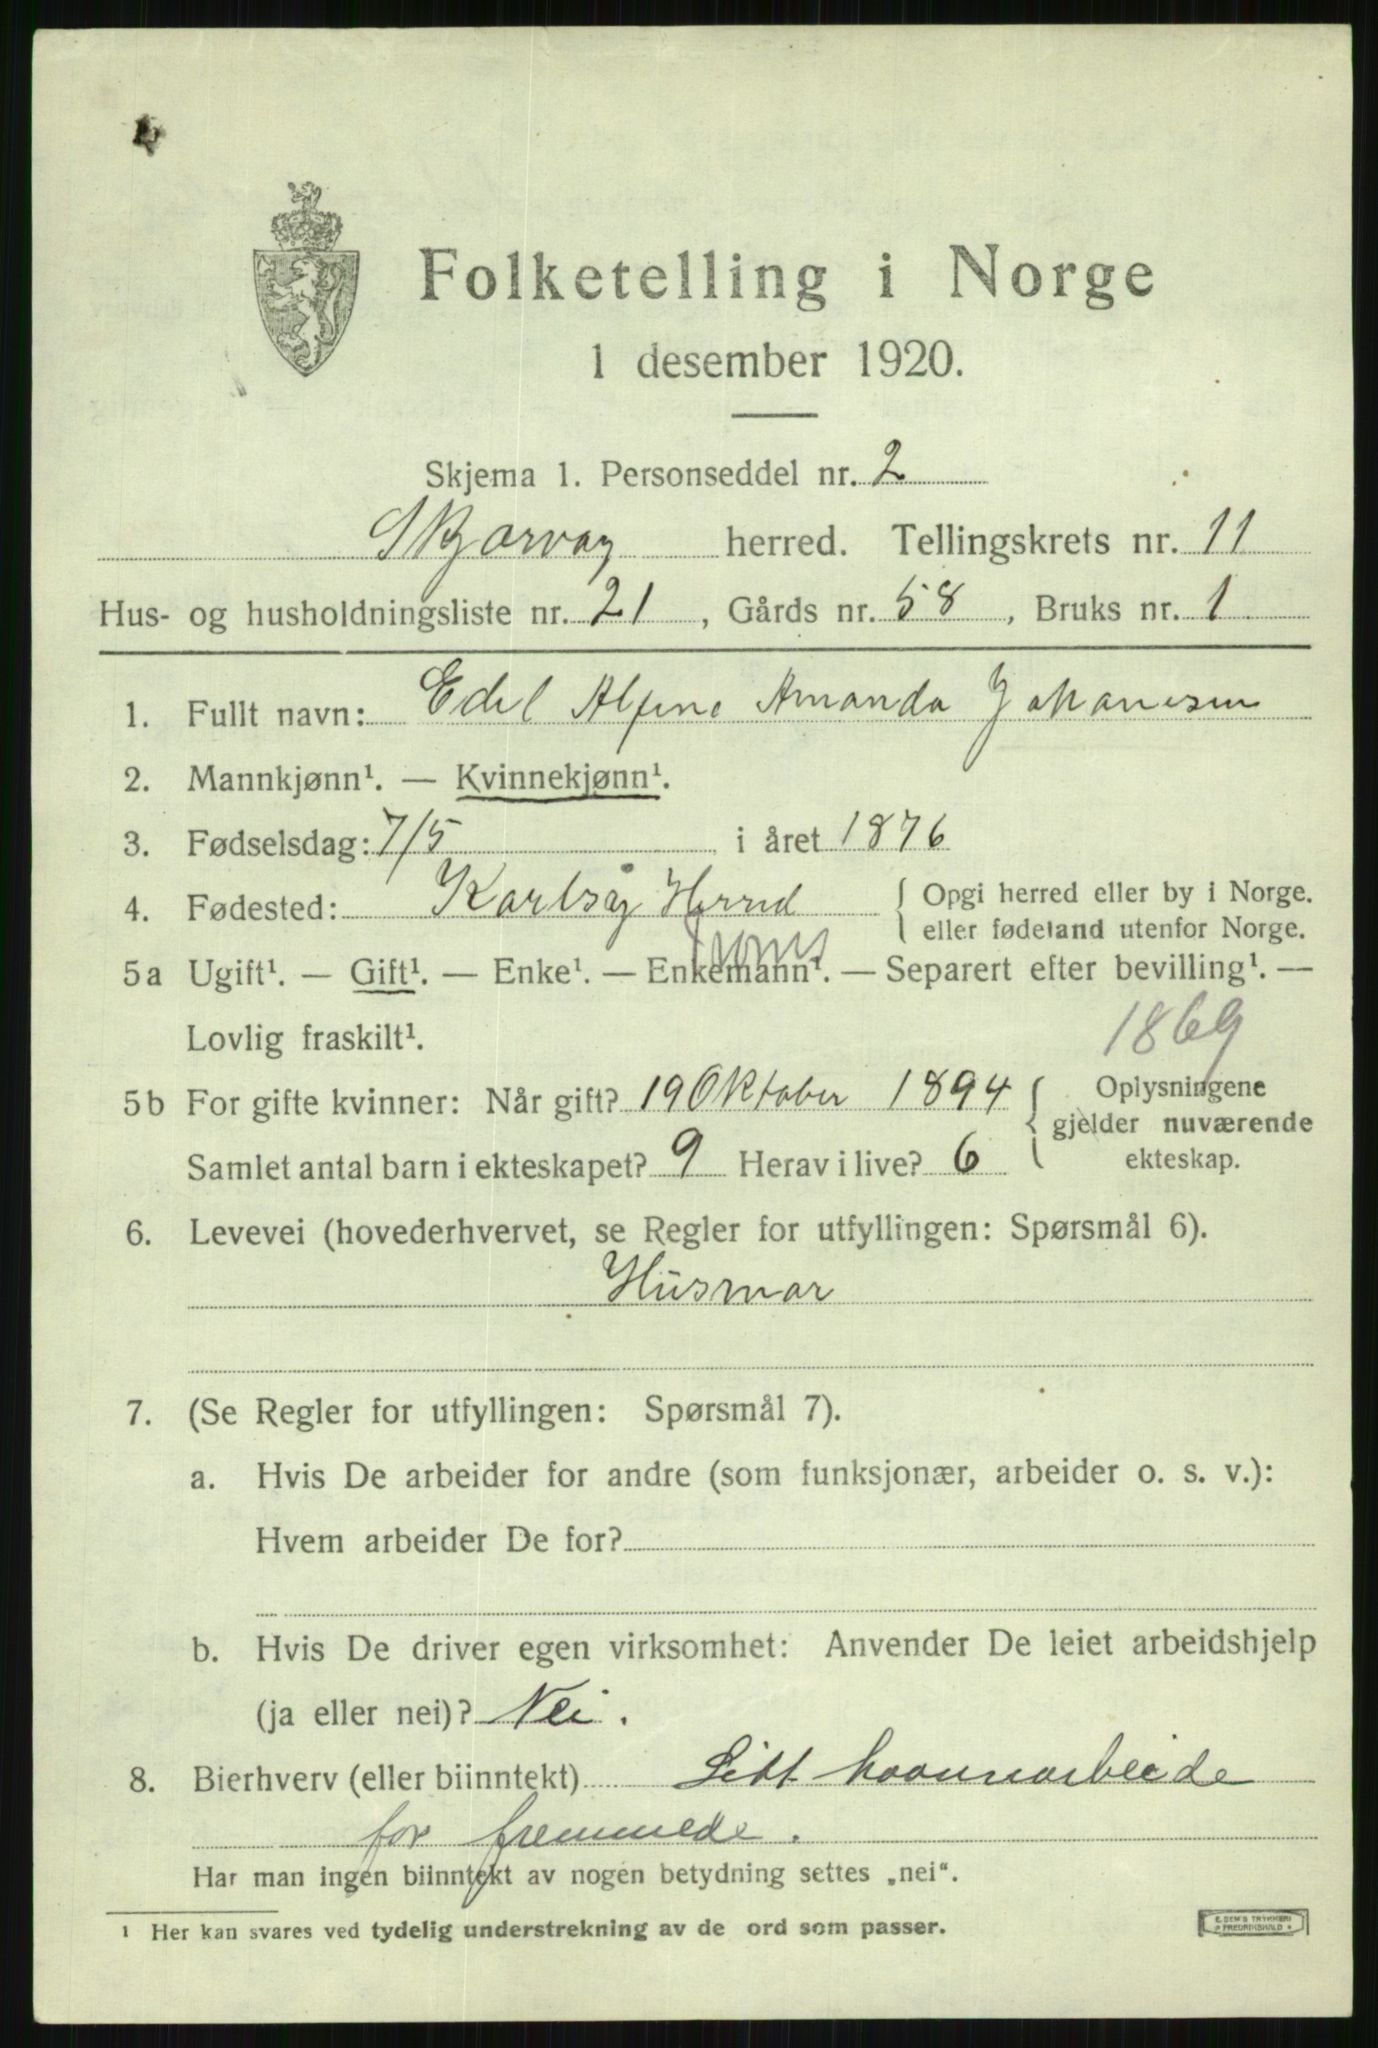 Folketelling i Norge
1 desember 1920.
Skjema 1. Personseddel nr. 2
Skjervøy herred. Tellingskrets nr. 11
Hus- og husholdningsliste nr. 21, Gårds nr. 58, Bruks nr. 1
1. Fullt navn: Edel Alfine Amanda Johanesen
2. Mannkjønn¹. — Kvinnekjønn¹.
3. Fødselsdag: 7/5 i året 1876
4. Fødested: Karlsøy Herred { Opgi herred eller by i Norge.
eller fødeland utenfor Norge.
Troms
5a Ugift¹. — Gift¹. — Enke¹. — Enkemann¹. — Separert efter bevilling¹. —
Lovlig fraskilt¹.
1869
5b For gifte kvinner: Når gift? 19 Oktober 1894 { Oplysningene
gjelder nuværende
Samlet antal barn i ekteskapet? 9 Herav i live? 6 ekteskap.
6. Levevei (hovederhvervet, se Regler for utfyllingen: Spørsmål 6).
Husmor
7. (Se Regler for utfyllingen: Spørsmål 7).
a. Hvis De arbeider for andre (som funksjonær, arbeider o. s. v.):
Hvem arbeider De for?
b. Hvis De driver egen virksomhet: Anvender De leiet arbeidshjelp
(ja eller nei)? Nei.
8. Bierhverv (eller biinntekt) Litt haannarbeide
for fremmede.
Har man ingen biinntekt av nogen betydning settes „nei“.
¹ Her kan svares ved tydelig understrekning av de ord som passer.
E. SEM'S TRYKKERI
FREDRIKSHALD